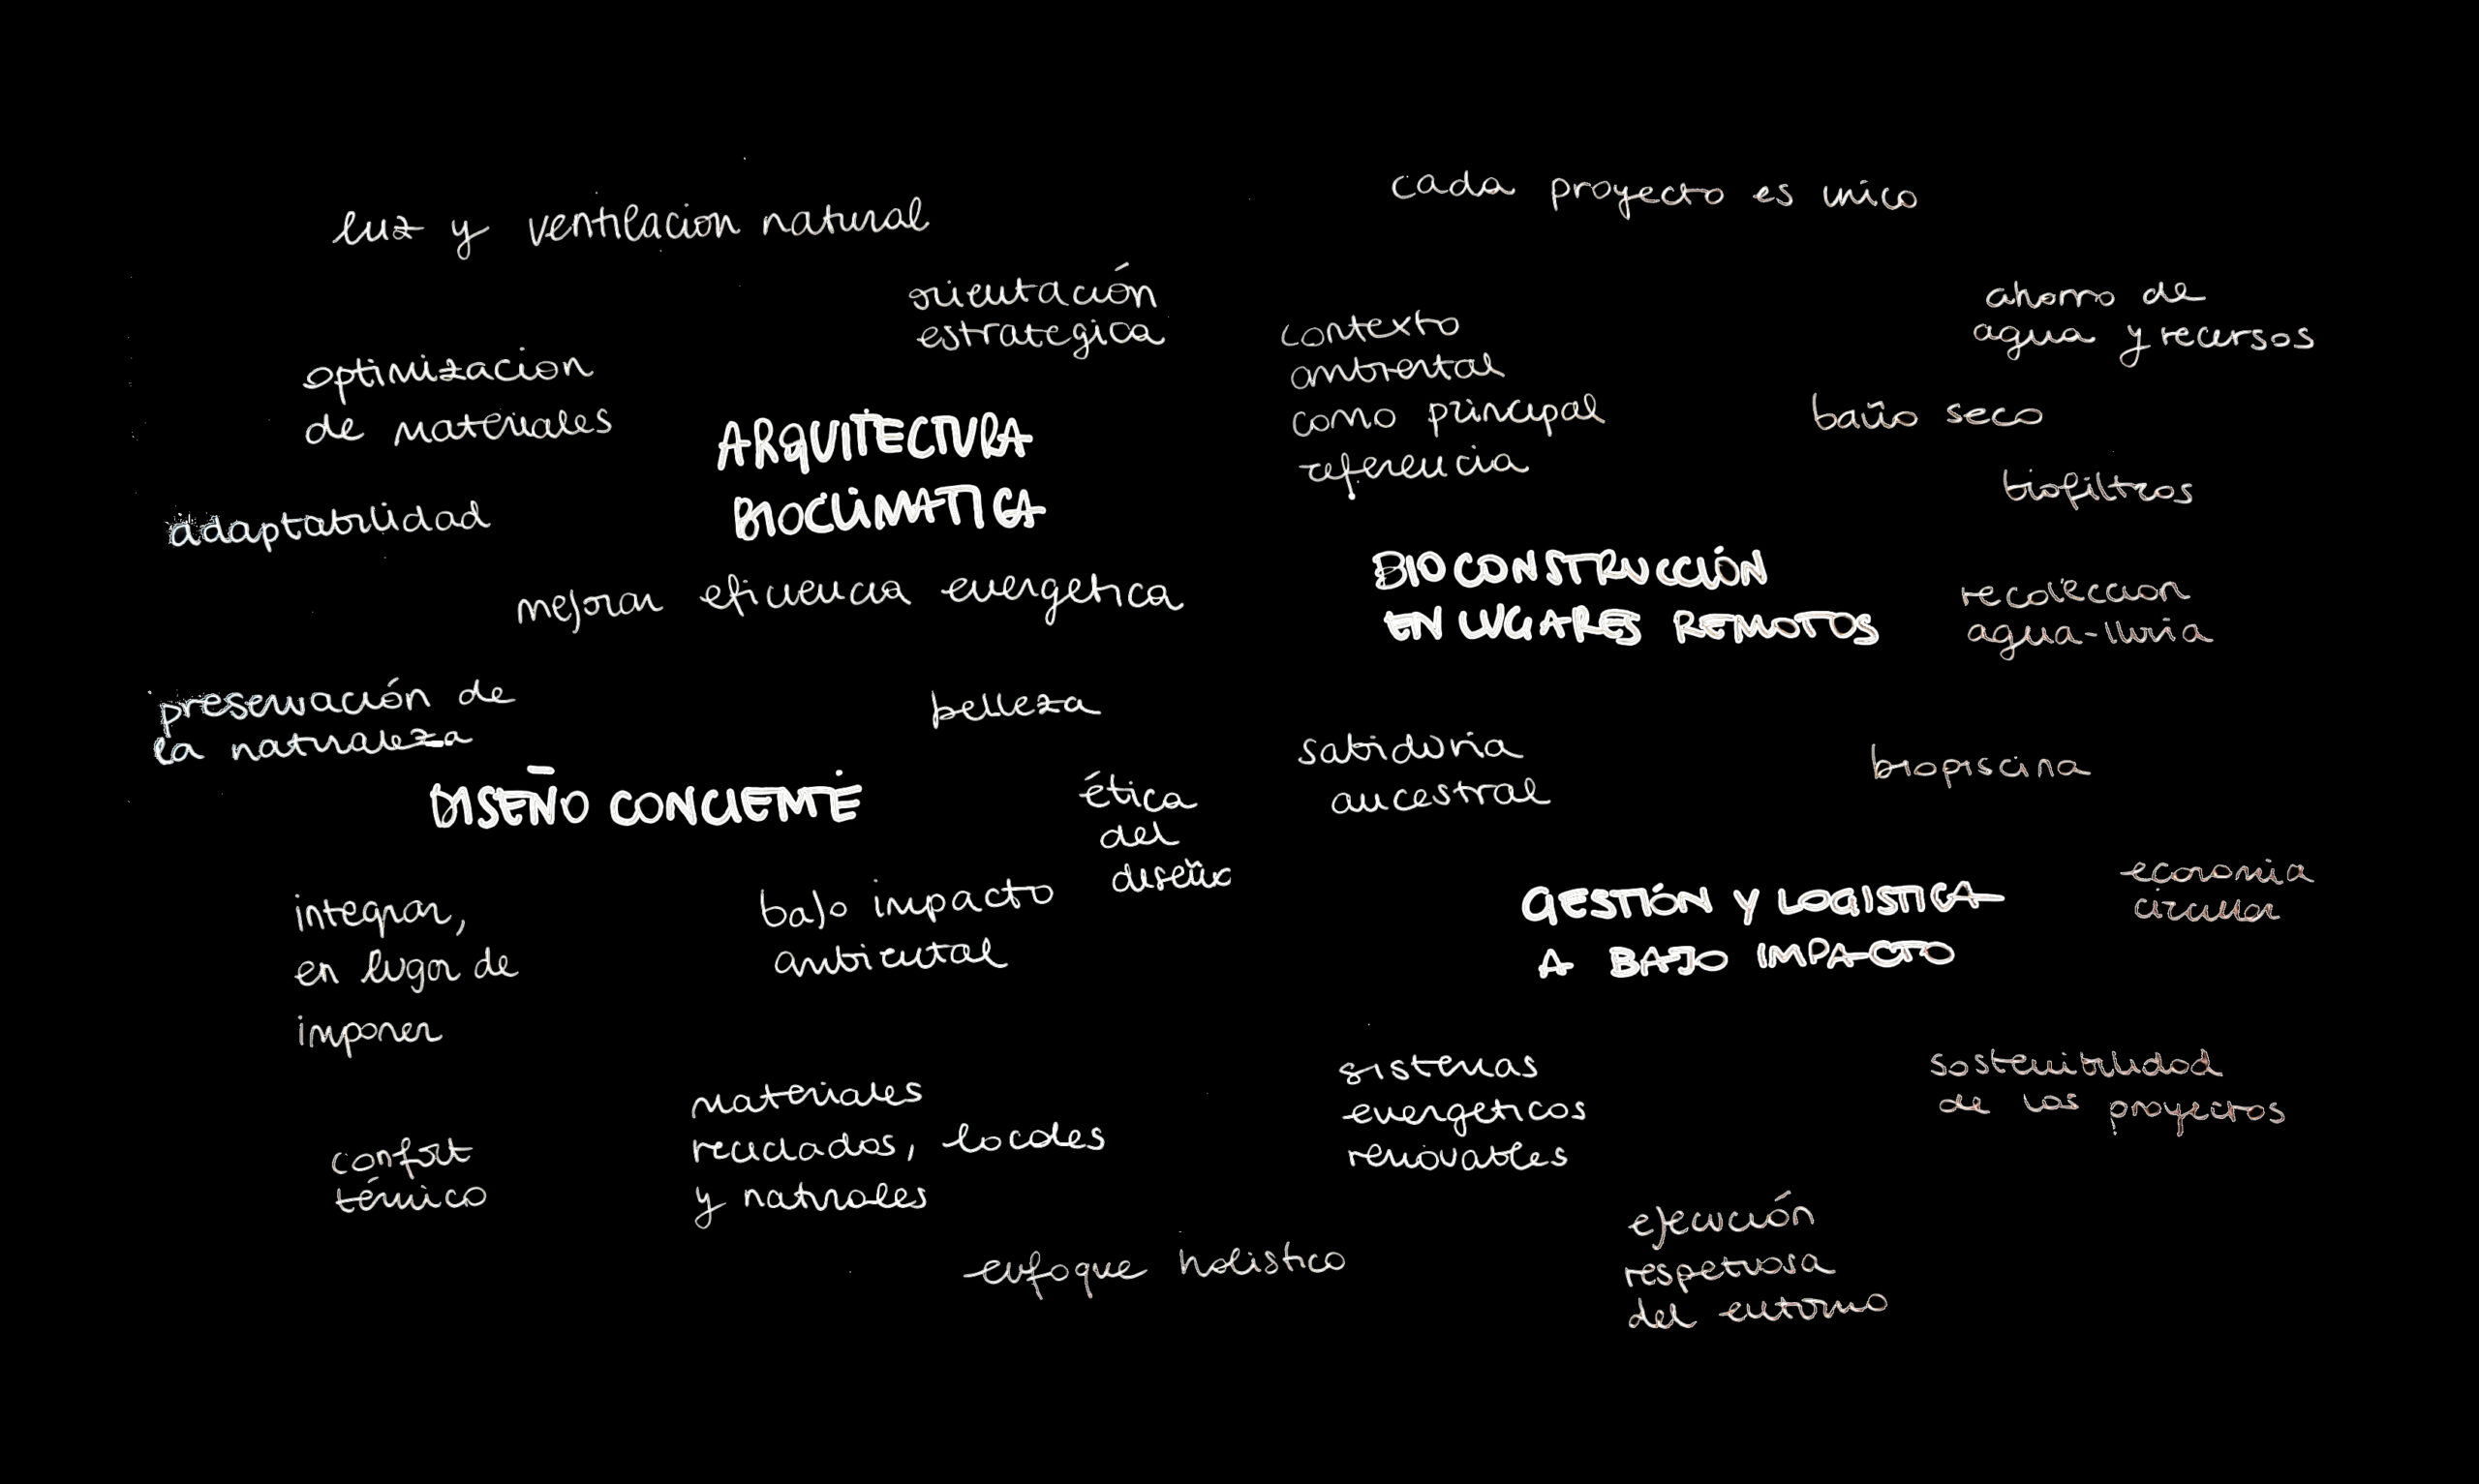 luz y ventilacion natural
cada proyecto es unico
orientación
estrategica
ahorro de
agua y recursos
contexto
ambiental
como principal
referencia
optimizacion
de materiales
baño seco
ARQUITECTURA
BIOCLIMATICA
biofiltros
adaptabilidad
BIOCONSTRUCCIÓN
EN LUGARES REMOTOS
mejorar eficiencia energetica
recoleccion
agua-lluvia
preservación de
la naturaleza
belleza
sabiduria
ancestral
biopiscina
DISEÑO CONCIENTE
ética
del
diseño
economia
circular
integrar,
en lugar de
imponer
bajo impacto
ambiental
GESTIÓN Y LOGISTICA
A BAJO IMPACTO
sistemas
energeticos
renovables
sostenibilidad
de los proyectos
materiales
reciclados, locales
y naturales
confort
térmico
ejecución
respetuosa
del entorno
enfoque holistico